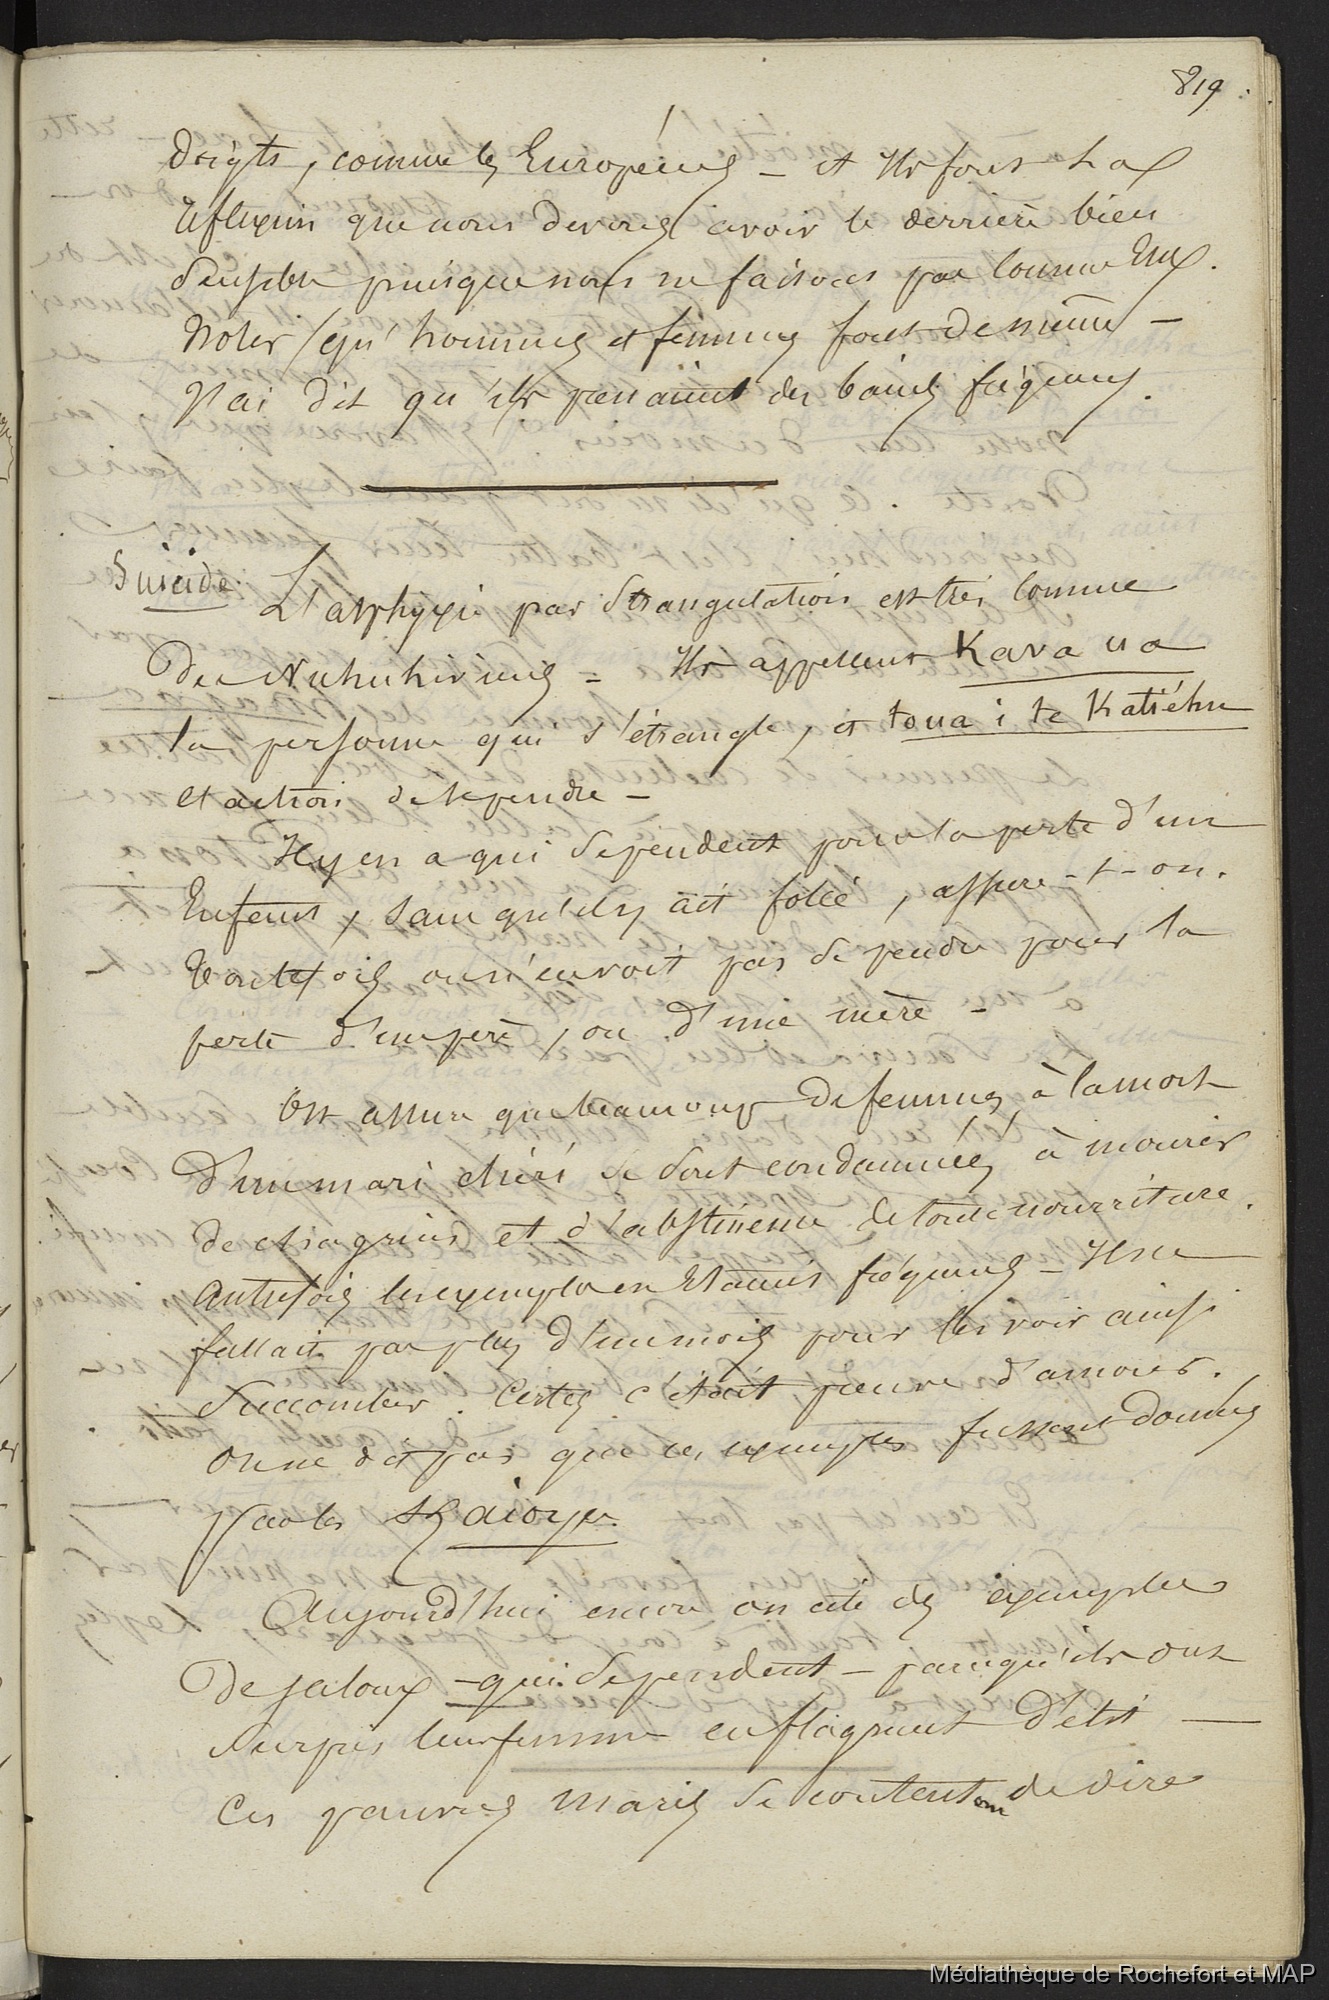 819
doigts, comme les Européens _ et Ils font la
réflexion que nous devons avoir le derrière bien
sensible puisque nous ne faisons pas comme Eux.
Noter qu'hommes et femmes font de même _
J'ai dit qu'ils prenaient des bains fréquens.
Suicide. L'asphyxie par strangulation est très connue
des Nukuhiviens = Ils appellent Kava ua
la personne qui s'étrangle, et toua i te Katiéhu
l'action de se pendre _
Il y en a qui se pendent pour la perte d'un
Enfant, sans qu'il y ait folie, assure-t-on.
Toutefois on n'en voit pas se pendre pour la
perte d'un père, ou d'une mère _
On assure que beaucoup de femmes, à la mort
d'un mari chéri se sont condamnées à mourir
de chagrin et d'abstinence de toute nourriture.
Autrefois les exemples en étaient fréquens _ Il ne
fallait pas plus d'un mois pour les voir ainsi
succomber. Certes c'était preuve d'amour.
On ne dit pas que ces exemples fussent donnés
par les Kaioyes.
Aujourd'hui encore on cite des exemples
de jaloux _ qui se pendent _ parcequ'ils ont
surpris leur femme en flagrant délit _
Ces pauvres maris se contentent de dire
Médiathèque de Rochefort et MAP